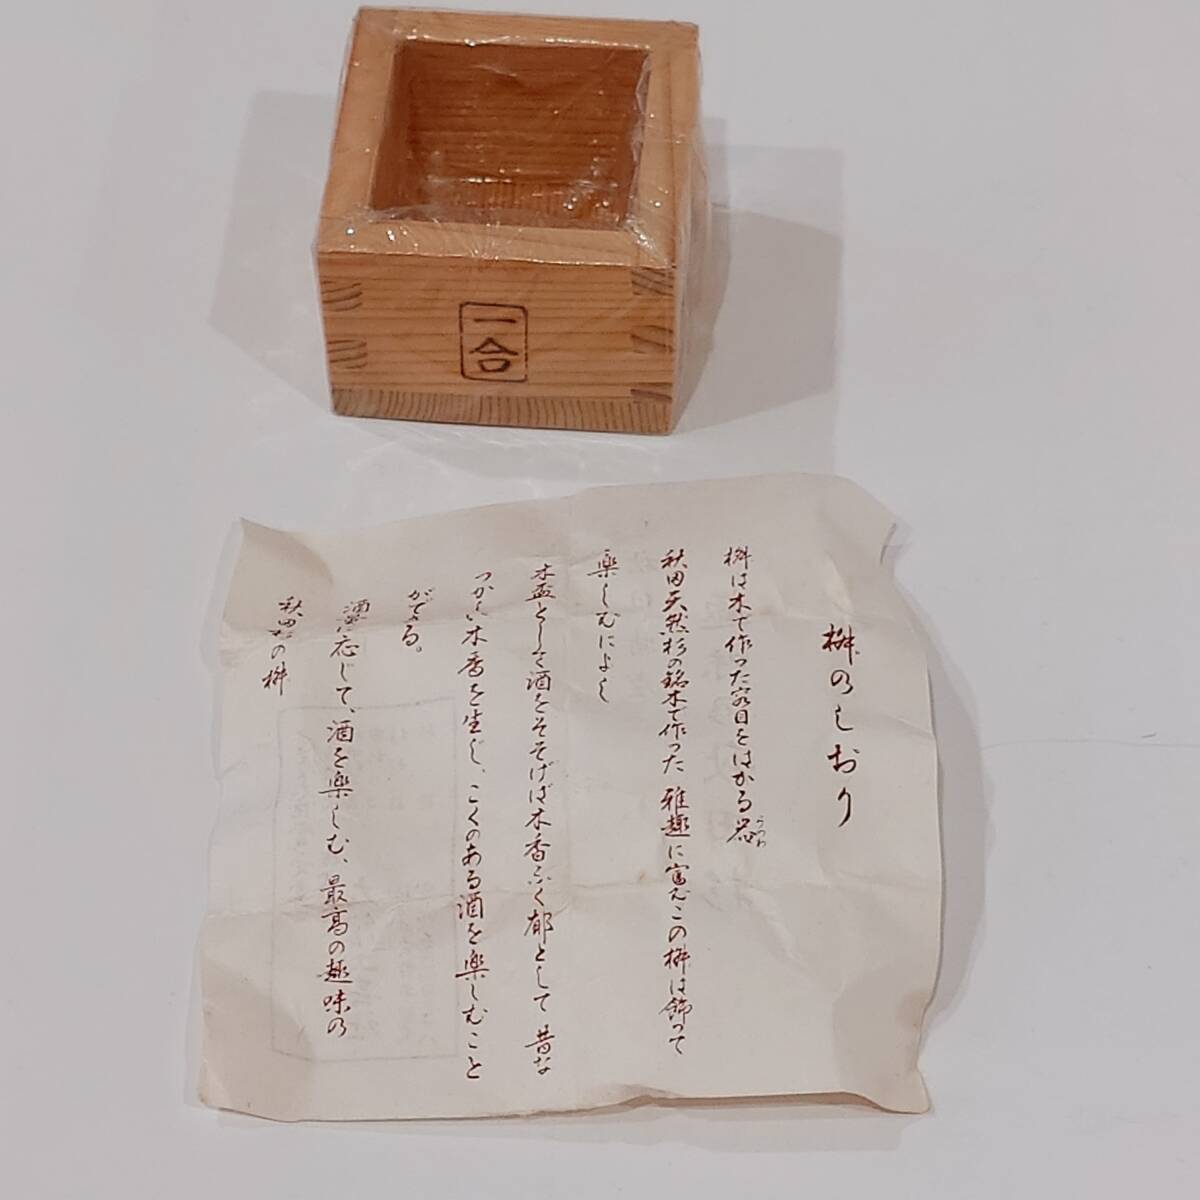 一合
桝のしおり
桝は木で作った容目をはかる器
うつわ
秋田天然杉の銘木で作った 雅趣に富むこの桝は飾って
楽しむによく
木盃として酒をそそげば木香ふく郁として 昔な
つかしい木香を生じ、こくのある酒を楽しむこと
ができる。
酒量に応じて、酒を楽しむ、最高の趣味の
秋田杉の桝